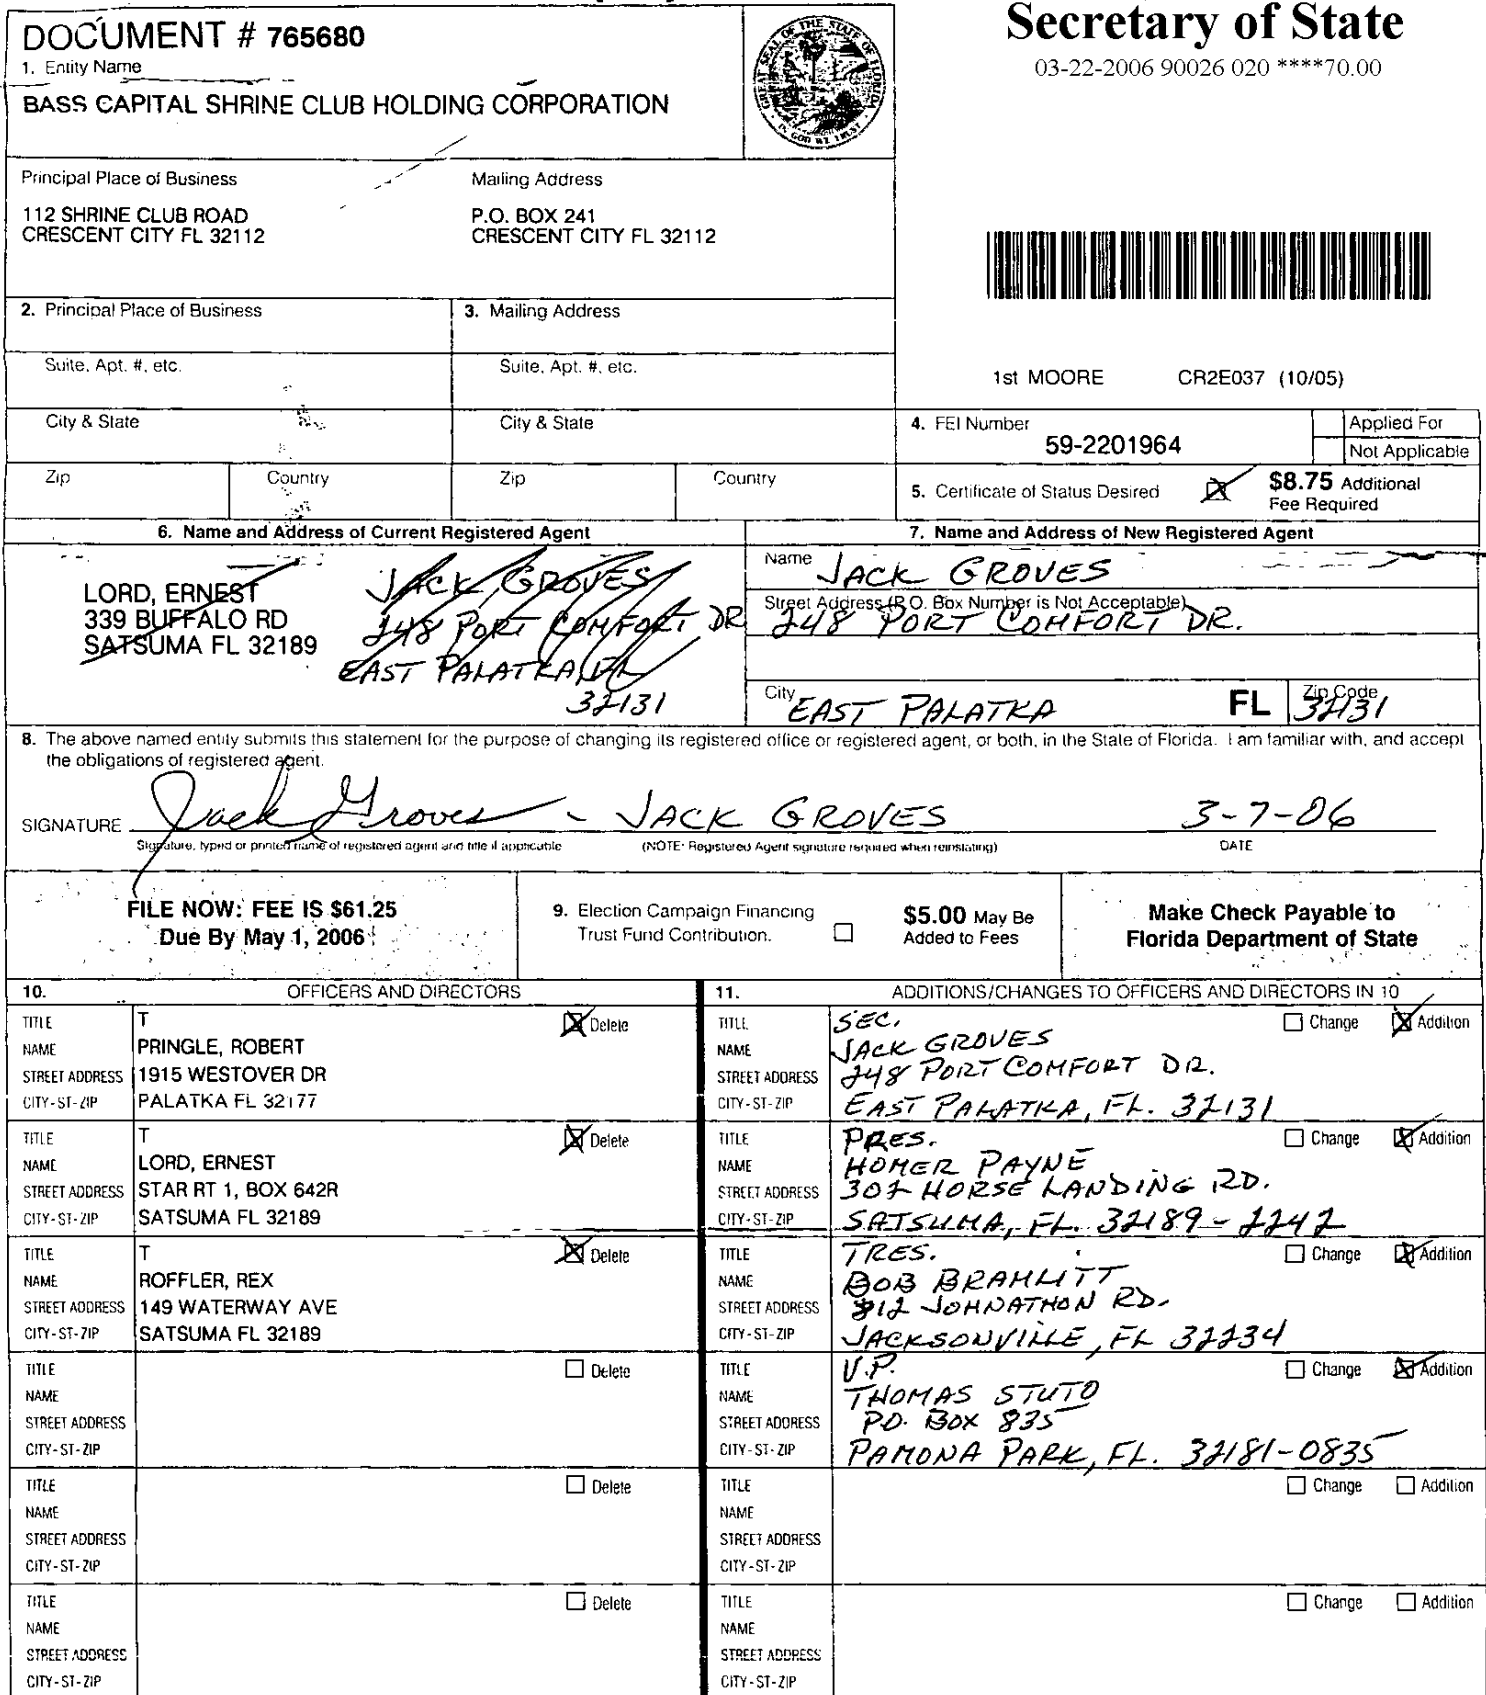 Secretary of State
03-22-2006 90026 020 ****70.00
DOCUMENT # 765680
1. Entity Name
BASS CAPITAL SHRINE CLUB HOLDING CORPORATION
GREAT SEAL OF THE STATE OF FLORIDA
IN GOD WE TRUST
Principal Place of Business
112 SHRINE CLUB ROAD
CRESCENT CITY FL 32112
Mailing Address
P.O. BOX 241
CRESCENT CITY FL 32112
2. Principal Place of Business
3. Mailing Address
Suite, Apt. #, etc.
Suite, Apt. #, etc.
1st MOORE CR2E037 (10/05)
City & State
City & State
4. FEI Number
59-2201964
Applied For
Not Applicable
Zip Country Zip Country
5. Certificate of Status Desired
$8.75 Additional
Fee Required
6. Name and Address of Current Registered Agent
LORD, ERNEST
339 BUFFALO RD
SATSUMA FL 32189
JACK GROVES
248 PORT COMFORT DR
EAST PALATKA, FL
32131
7. Name and Address of New Registered Agent
Name JACK GROVES
Street Address (P.O. Box Number is Not Acceptable)
248 PORT COMFORT DR.
City EAST PALATKA FL Zip Code 32131
8. The above named entity submits this statement for the purpose of changing its registered office or registered agent, or both, in the State of Florida. I am familiar with, and accept
the obligations of registered agent.
SIGNATURE Jack Groves - JACK GROVES 3-7-06
Signature, typed or printed name of registered agent and title if applicable (NOTE: Registered Agent signature required when reinstating) DATE
FILE NOW: FEE IS $61.25
Due By May 1, 2006
9. Election Campaign Financing
Trust Fund Contribution.
$5.00 May Be
Added to Fees
Make Check Payable to
Florida Department of State
10. OFFICERS AND DIRECTORS
TITLE T Delete
NAME PRINGLE, ROBERT
STREET ADDRESS 1915 WESTOVER DR
CITY-ST-ZIP PALATKA FL 32177
TITLE T Delete
NAME LORD, ERNEST
STREET ADDRESS STAR RT 1, BOX 642R
CITY-ST-ZIP SATSUMA FL 32189
TITLE T Delete
NAME ROFFLER, REX
STREET ADDRESS 149 WATERWAY AVE
CITY-ST-ZIP SATSUMA FL 32189
TITLE Delete
NAME
STREET ADDRESS
CITY-ST-ZIP
TITLE Delete
NAME
STREET ADDRESS
CITY-ST-ZIP
TITLE Delete
NAME
STREET ADDRESS
CITY-ST-ZIP
11. ADDITIONS/CHANGES TO OFFICERS AND DIRECTORS IN 10
TITLE SEC. Change Addition
NAME JACK GROVES
STREET ADDRESS 248 PORT COMFORT DR.
CITY-ST-ZIP EAST PALATKA, FL. 32131
TITLE PRES. Change Addition
NAME HOMER PAYNE
STREET ADDRESS 302 HORSE LANDING RD.
CITY-ST-ZIP SATSUMA, FL. 32189-2242
TITLE TRES. Change Addition
NAME BOB BRAMLITT
STREET ADDRESS 812 JOHNATHON RD.
CITY-ST-ZIP JACKSONVILLE, FL 32234
TITLE V.P. Change Addition
NAME THOMAS STUTO
STREET ADDRESS P.O. BOX 835
CITY-ST-ZIP PAMONA PARK, FL. 32181-0835
TITLE Change Addition
NAME
STREET ADDRESS
CITY-ST-ZIP
TITLE Change Addition
NAME
STREET ADDRESS
CITY-ST-ZIP